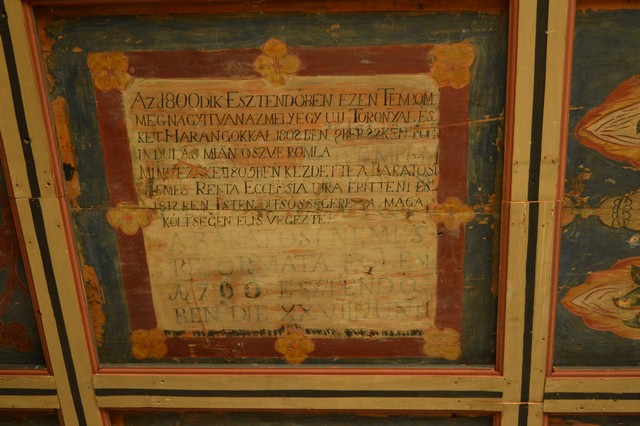 AZ 1800DIK ESZTENDŐBEN EZEN TEMPOM
MEGNAGYITVAN AZ MELY EGY UJJ TORONYAL ES
KET HARANGOKKAL 1802BEN
INDULÁS MIÁN ÖSZVE ROMLA
MIND EZEKET 1809BEN KEZDETTE A BARATOSI
NEMES REFTA ECCLESIA UJRA EPITTENI ES
1812 BEN ISTEN DITSŐSSEGERE A MAGA
KÖLTSEGEN EL IS VEGEZTE
NEMES
REFORMATA
1700 ESZTENDŐ
BEN DIE